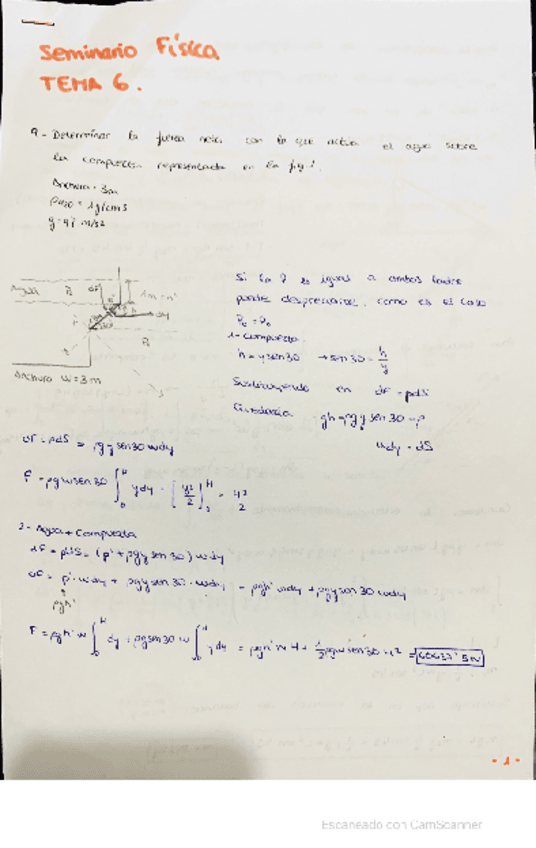 Seminario Física
TEMA 6.
9- Determinar la fuerza neta con la que actúa el agua sobre
la compuerta representada en la fig.
Anchura = 3m
ρH2O = 1g/cm3
g = 9'8 m/s2
Agua
Anchura w = 3m
Si la P es igual a ambos lados
puede despreciarse, como es el caso
P0 = P0
1- Compuerta
h = y sen30 → sen 30 = h/y
Sustituyendo en dF = pdS
gh = ρg y sen 30 = P
wdy = dS
dF = pdS = ρg y sen30 wdy
F = ρgw sen30 ∫ y dy = [y²/2] = H²/2
2- Agua + Compuerta
dF = pdS = (p' + ρgy sen 30) wdy
dF = p' · wdy + ρgy sen 30 · wdy = ρgh' wdy + ρgy sen 30 wdy
ρgh'
F = ρgh' w ∫ dy + ρg sen30 w ∫ y dy = ρgh' w H + 1/2 ρgw sen 30 H² =
- 1 -
Escaneado con CamScanner